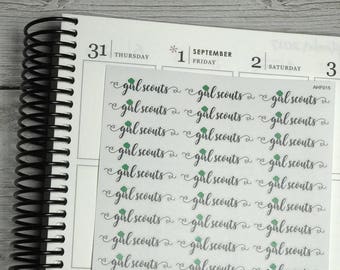 31 THURSDAY *1 SEPTEMBER FRIDAY 2 SATURDAY 3
AHF015
girl scouts girl scouts girl scouts
girl scouts girl scouts girl scouts
girl scouts girl scouts girl scouts
girl scouts girl scouts girl scouts
girl scouts girl scouts girl scouts
girl scouts girl scouts girl scouts
girl scouts girl scouts girl scouts
girl scouts girl scouts girl scouts
girl scouts girl scouts girl scouts